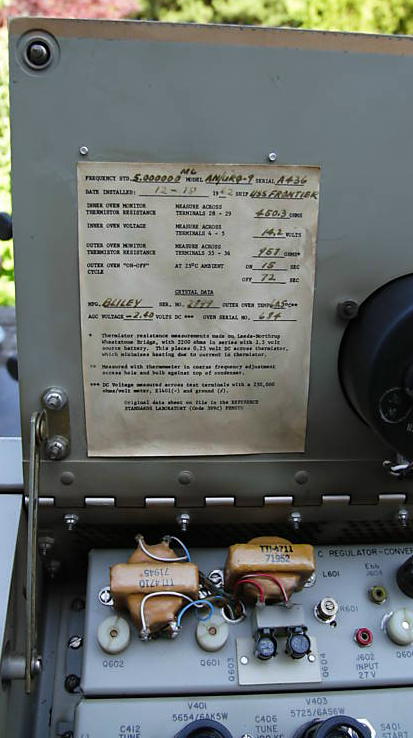 MC
FREQUENCY STD. 5.000000 MODEL AN/URQ-9 SERIAL A436
DATE INSTALLED: 12-10 1962 SHIP USS FRONTIER
INNER OVEN MONITOR MEASURE ACROSS
THERMISTOR RESISTANCE TERMINALS 28 - 29 450.3 OHMS
INNER OVEN VOLTAGE MEASURE ACROSS
TERMINALS 4 - 5 14.2 VOLTS
OUTER OVEN MONITOR MEASURE ACROSS
THERMISTOR RESISTANCE TERMINALS 35 - 36 957 OHMS*
OUTER OVEN "ON-OFF" AT 25°C AMBIENT ON 15 SEC
CYCLE OFF 72 SEC
CRYSTAL DATA
MFG. BLILEY SER. NO. OUTER OVEN TEMP. °C**
AGC VOLTAGE -2.40 VOLTS DC *** OVEN SERIAL NO. 694
* Thermistor resistance measurements made on Leeds-Northrup
Wheatstone Bridge, with 2200 ohms in series with 1.5 volt
source battery. This places 0.25 volt DC across thermistor,
which minimizes heating due to current in thermistor.
** Measured with thermometer in coarse frequency adjustment
access hole and bulb against top of condenser.
*** DC Voltage measured across test terminals with a 250,000
ohms/volt meter, E1401(-) and ground (+).
Original data sheet on file in the REFERENCE
STANDARDS LABORATORY (Code 359C) PEMSTO
TTI-4710
71945
TTI-4711
71952
C REGULATOR-CONVER
L601
Ebb
J604
R601
Q602
Q601
Q603
Q604
J602
INPUT
27V
Q60
V401
5654/6AK5W
V403
5725/6AS6W
C412
TUNE
C406
TUNE
S401
START